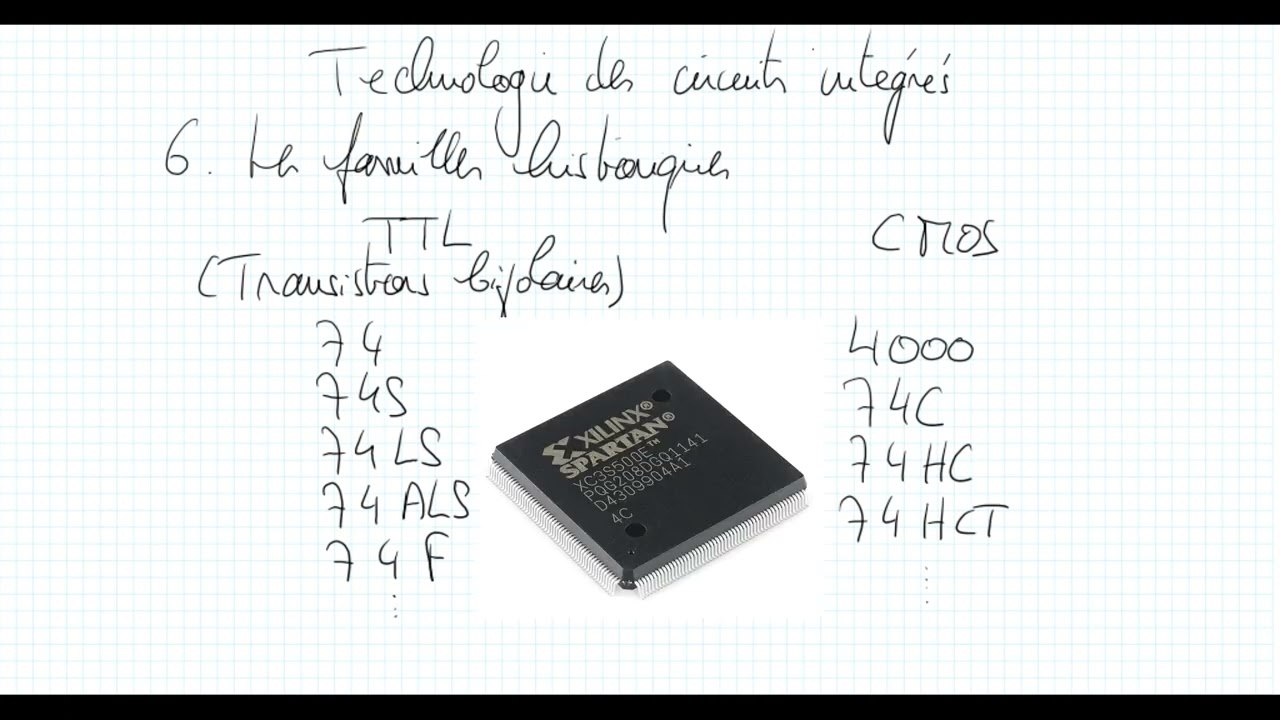 Technologie des circuits intégrés
6. Les familles historiques
TTL
(Transistors bipolaires)
74
74S
74LS
74ALS
74F
CMOS
4000
74C
74HC
74HCT
XILINX®
SPARTAN®
XC3S500E™
PQG208DGQ1141
D4309904A1
4C